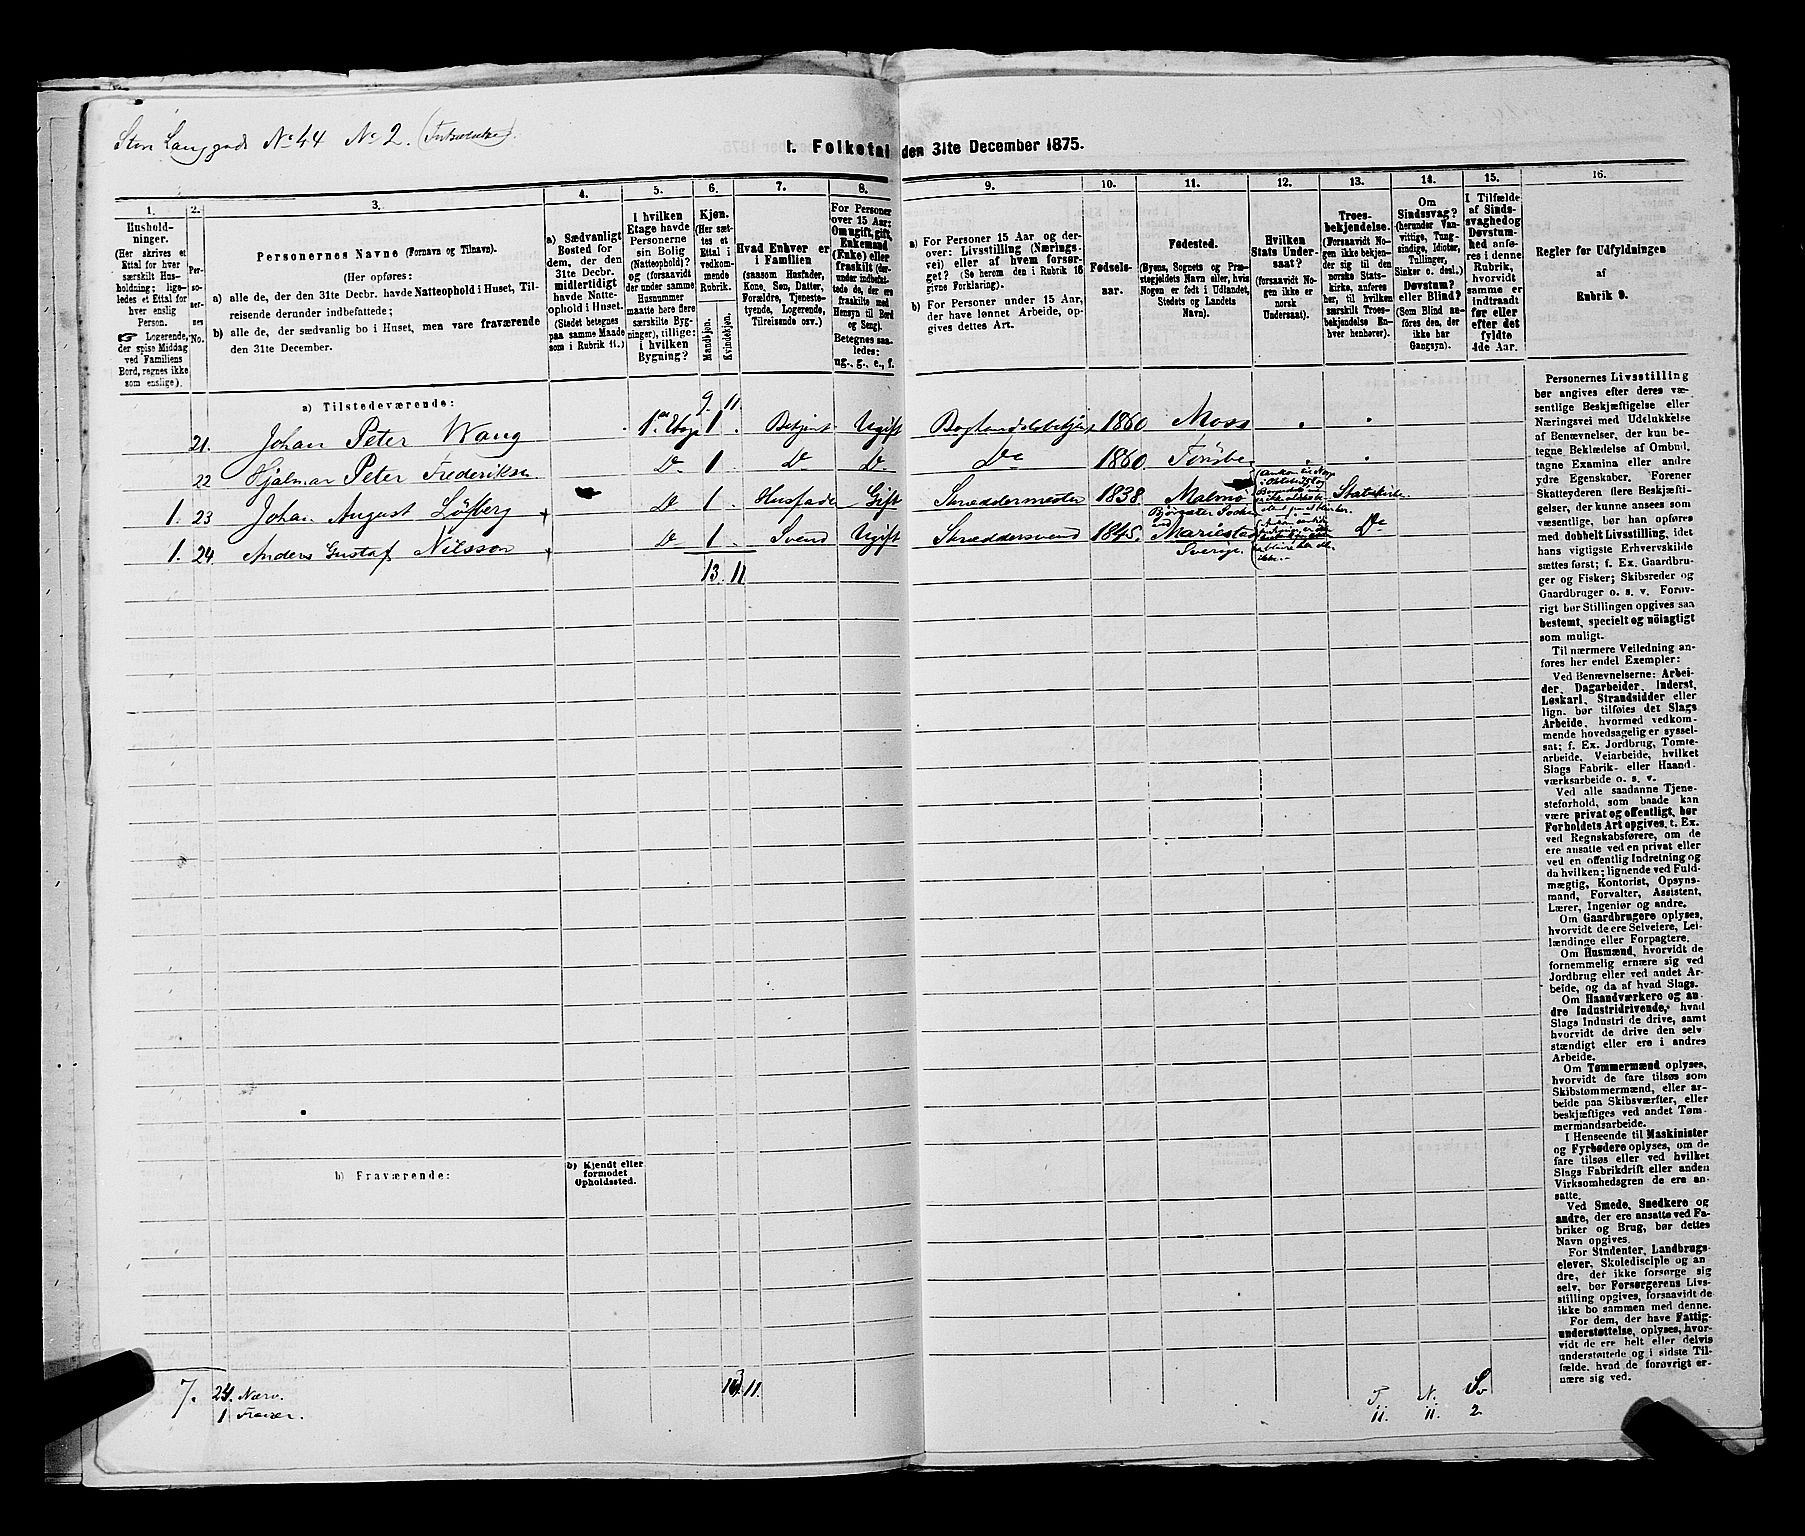 Store Langgade No 44 No 2.
1. Folketal den 31te December 1875.
1. 2. 3. 4. 5. 6. 7. 8. 9. 10. 11. 12. 13. 14. 15. 16.
Hushold-
ninger.
(Her skrives et
Ettal for hver
særskilt Hus-
holdning; lige-
ledes et Ettal for
hver enslig
Person.
☞ Logerende,
der spise Middag
ved Familiens
Bord, regnes ikke
som enslige).
Per-
so-
ner-
nes
No.
Personernes Navne (Fornavn og Tilnavn).
(Her opføres:
a) alle de, der den 31te Decbr. havde Natteophold i Huset, Til-
reisende derunder indbefattede;
b) alle de, der sædvanlig bo i Huset, men vare fraværende
den 31te December.
a) Sædvanligt
Bosted for
dem, der den
31te Decbr.
midlertidigt
havde Natte-
ophold i Huset.
(Stedet betegnes
paa samme Maade
som i Rubrik 11.)
I hvilken
Etage havde
Personerne
sin Bolig
(Natteophold)?
og (forsaavidt
der under samme
Husnummer
maatte høre flere
særskilte Byg-
ninger), tillige:
i hvilken
Bygning?
Kjøn.
(Her sæt-
tes et
Ettal i
vedkom-
mende
Rubrik.
Mandkjøn.
Kvindekjøn.
Hvad Enhver er
i Familien
(saasom Husfader,
Kone, Søn, Datter,
Forældre, Tjeneste-
tyende, Logerende,
Tilreisende osv.)
For Personer
over 15 Aar:
Om ugift, gift,
Enkemand
(Enke) eller
fraskilt (der-
under indbefat-
tede de, der ere
fraskilte med
Hensyn til Bord
og Seng).
Betegnes saa-
ledes:
ug., g., e., f.
a) For Personer 15 Aar og der-
over: Livsstilling (Nærings-
vei) eller af hvem forsør-
get? (Se herom den i Rubrik 16
givne Forklaring).
b) For Personer under 15 Aar,
der have lønnet Arbeide, op-
gives dettes Art.
Fødsels-
aar.
Fødested.
(Byens, Sognets og Præ-
stegjeldets Navn eller, hvis
Nogen er født i Udlandet,
Stedets og Landets
Navn).
Hvilken
Stats Under-
saat?
(forsaavidt No-
gen ikke er
norsk
Undersaat).
Troes-
bekjendelse.
(Forsaavidt No-
gen ikke bekjen-
der sig til den
norske Stats-
kirke, anføres
her, til hvilken
særskilt Troes-
bekjendelse En-
hver henhører).
Om
Sindssvag?
(herunder Van-
vittige, Tung-
sindige, Idioter,
Tullinger,
Sinker o. desl.)
Døvstum?
eller Blind?
(Som Blind an-
føres den, der
ikke har
Gangsyn).
I Tilfælde
af Sinds-
svaghed og
Døvstum-
hed anfø-
res i denne
Rubrik,
hvorvidt
samme er
indtraadt
før eller
efter det
fyldte
4de Aar.
Regler for Udfyldningen
af
Rubrik 9.
a) Tilstedeværende: 9. 11
21. Johan Peter Wang 1ste Etage 1 Betjent Ugift 1860 Moss
22 Hjalmar Peter Frederiksen Do 1 Do Do Do 1860
1. 23 Johan August Löfberg Do 1 Husfader Gift Skræddermester 1838. Malmø Statskirke
1. 24. Anders Gustaf Nilsson Do 1 Svend Ugift Skræddersvend 1845. Mariestad Sverige Do
13. 11
b) Fraværende:
b) Kjendt eller
formodet
Opholdssted.
7. 24. Nærv. 13 11. T N. Sv
1 Fravær. 11. 11. 2
Personernes Livsstilling
bør angives efter deres væ-
sentlige Beskjæftigelse eller
Næringsvei med Udelukkelse
af Benævnelser, der kun be-
tegne Beklædelse af Ombud,
tagne Examina eller andre
ydre Egenskaber. Forener
Skatteyderen flere Beskjæfti-
gelser, der kunne ansees som
væsentlige, bør han opføres
med dobbelt Livsstilling, idet
hans vigtigste Erhvervskilde
sættes først; f. Ex. Gaardbru-
ger og Fisker; Skibsreder og
Gaardbruger o. s. v. Forøv-
rigt bør Stillingen opgives saa
bestemt, specielt og nöiagtigt
som muligt.
Til nærmere Veiledning an-
føres her endel Exempler:
Ved Benævnelserne: Arbei-
der, Dagarbeider, Inderst,
Løskarl, Strandsidder eller
lign. bør tilføies det Slags
Arbeide, hvormed vedkom-
mende hovedsagelig er syssel-
sat; f. Ex. Jordbrug, Tomte-
arbeide, Veiarbeide, hvilket
Slags Fabrik- eller Haand-
værksarbeide o. s. v.
Ved alle saadanne Tjene-
steforhold, som baade kan
være privat og offentligt, bør
Forholdets Art opgives, t. Ex.
ved Regnskabsførere, om de
ere ansatte ved en privat eller
ved en offentlig Indretning og
da hvilken; lignende ved Fuld-
mægtig, Kontorist, Opsyns-
mand, Forvalter, Assistent,
Lærer, Ingeniør og andre.
Om Gaardbrugere oplyses,
hvorvidt de ere Selveiere, Lei-
lændinge eller Forpagtere.
Om Husmænd, hvorvidt de
fornemmelig ernære sig ved
Jordbrug eller ved andet Ar-
beide, og da af hvad Slags.
Om Haandværkere og an-
dre Industridrivende, hvad
Slags Industri de drive, samt
hvorvidt de drive den selv-
stændigt eller ere i andres
Arbeide.
Om Tømmermænd oplyses,
hvorvidt de fare tilsøs som
Skibstømmermænd, eller ar-
beide paa Skibsværfter, eller
beskjæftiges ved andet Tøm-
mermandsarbeide.
I Henseende til Maskinister
og Fyrbødere oplyses, om de
fare tilsøs eller ved hvilket
Slags Fabrikdrift eller anden
Virksomhedsgren de ere an-
satte.
Ved Smede, Snedkere og
andre, der ere ansatte ved Fa-
briker og Brug, bør dettes
Navn opgives.
For Studenter, Landbrugs-
elever, Skoledisciple og an-
dre, der ikke forsørge sig
selv, bør Forsørgerens Livs-
stilling opgives, forsaavidt de
ikke bo sammen med denne.
For dem, der have Fattig-
understøttelse, oplyses, hvor-
vidt de ere helt eller delvis
understøttede og i sidste Til-
fælde, hvad de forøvrigt er-
nære sig ved.